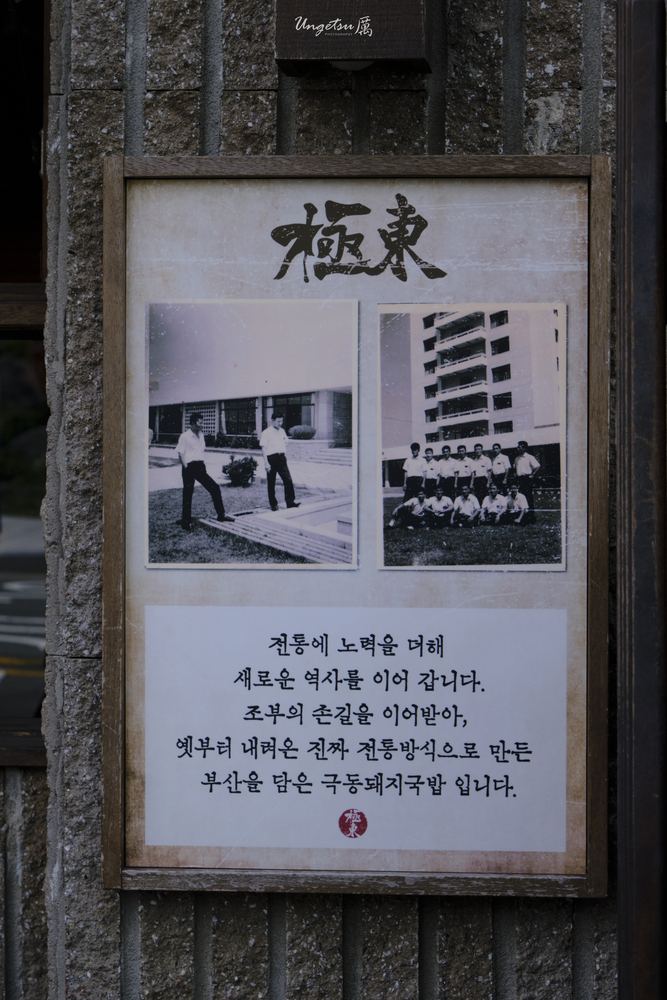 Ungetsu 厲
PHOTOGRAPHY
極東
전통에 노력을 더해
새로운 역사를 이어 갑니다.
조부의 손길을 이어받아,
옛부터 내려온 진짜 전통방식으로 만든
부산을 담은 극동돼지국밥 입니다.
極
東